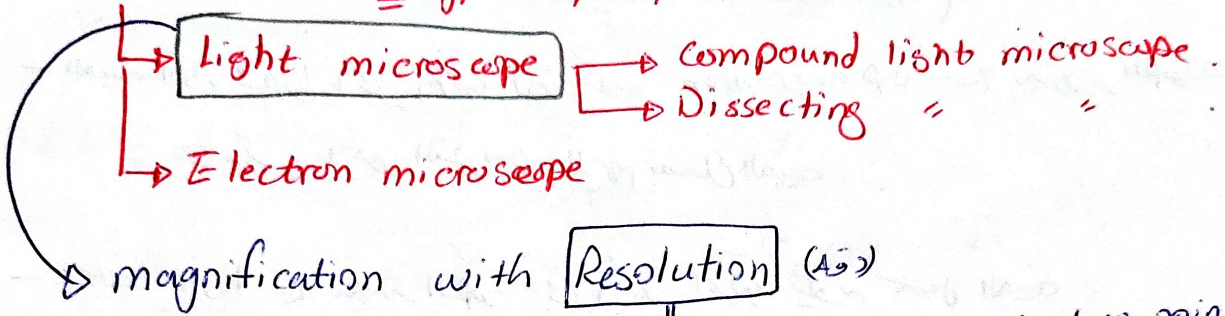 Light microscope → Compound light microscope.
→ Dissecting 〃 〃 .
→ Electron microscope
→ magnification with Resolution (دقة)